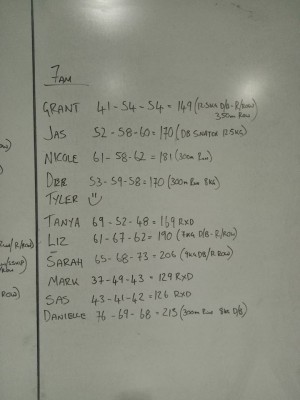 7am
GRANT 41-54-54=149 (12.5KG D/B-R/ROW)
350m ROW
JAS 52-58-60=170 (DB SNATCH 12.5KG)
NICOLE 61-58-62=181 (300m Run)
DEB 53-59-58=170 (300m Run 8KG)
TYLER
TANYA 69-52-48=169 RXD
LIZ 61-67-62=190 (7KG D/B-R/ROW)
SARAH 65-68-73=206 (9KG DB/R ROW)
MARK 37-49-43=129 RXD
SAS 43-41-42=126 RXD
DANIELLE 76-69-68=213 (300m Run 8KG D/B)
ROW)